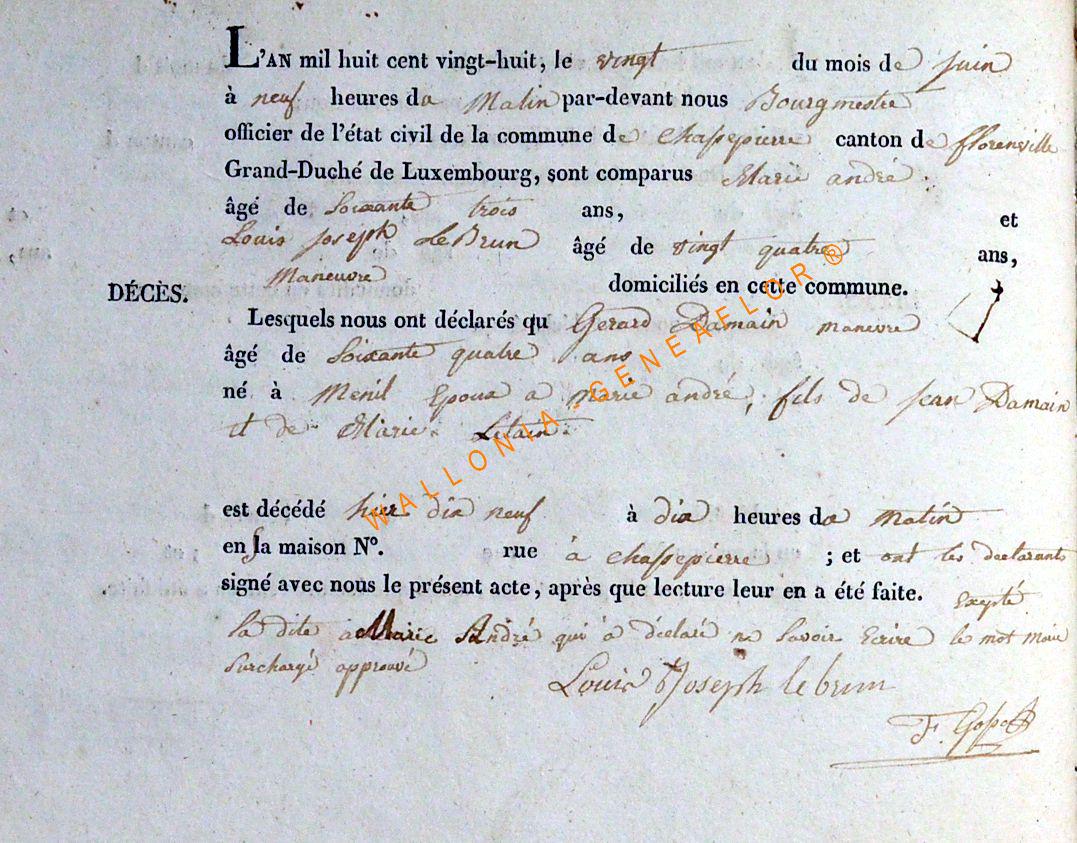 L'AN mil huit cent vingt-huit, le vingt du mois de juin
à neuf heures du Matin par-devant nous Bourgmestre
officier de l'état civil de la commune de chassepierre canton de florenville
Grand-Duché de Luxembourg, sont comparus Marie andré
âgé de Soixante trois ans, et
Louis joseph LeBrun âgé de vingt quatre ans,
Maneuvre domiciliés en cette commune.
DÉCÈS.
Lesquels nous ont déclarés qu Gerard Damain maneuvre
âgé de Soixante quatre ans
né à Menil Epoux a Marie andré, fils de jean Damain
et de Marie
est décédé hier dix neuf à dix heures du Matin
en sa maison N°. rue à chassepierre ; et ont les declarants
signé avec nous le présent acte, après que lecture leur en a été faite. Exepté
la dite Marie André qui à déclaré ne Savoir Ecrire le mot
Surchargé approuvé
Louis Joseph lebrun
F.
WALLONIA-GENEAFLOR®